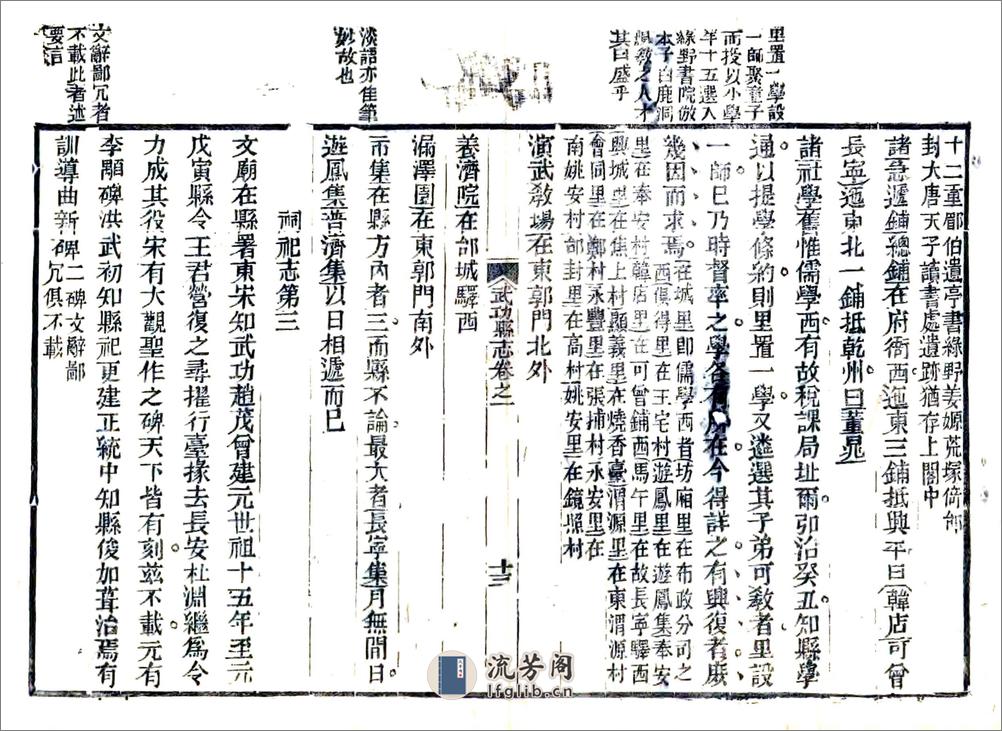 里置一學設
一師聚童子
而投以小學
年十五選入
綠野書院倣
本子白鹿洞
之人才
其曰盛乎
十二重郿伯遺亭書綠野姜嫄荒塚倚邰
封大唐天子讀書處遺跡猶存上閣中
諸急遞鋪總鋪在府衙西迤東三鋪抵興平曰韓店可曾
長寧迤東北一鋪抵乾州曰董晁
諸社學舊惟儒學西有故稅課局址爾弘治癸丑知縣學
通以提學條約則里置一學又遴選其子弟可教者里設
一師巳乃時督率之學各有所在今得詳之有興復者庶
幾因而求焉
在城里即儒學西者坊廂里在布政分司之
西俱得里在王宅村遊鳳里在遊鳳集奉安
里在奉安村韓店里在可曾鋪西馬午里在故長寧驛西
興城里在焦上村顯義里在燒香臺渭源里在東渭源村
會同里在鄭村永豐里在張捕村永安里在
南姚安村邰封里在高村姚安里在鏡照村
演武教場在東郭門北外
武功縣志卷之一
十三
養濟院在邰城驛西
漏澤園在東郭門南外
市集在縣方內者三而縣不論最大者長寧集月無間日
遊鳳集普濟集以日相遞而巳
祠祀志第三
文廟在縣署東宋知武功趙茂曾建元世祖十五年至元
戊寅縣令王君營復之尋擢行臺掾去長安杜淵繼爲令
力成其役宋有大觀聖作之碑天下皆有刻兹不載元有
李顒碑洪武初知縣祀更建正統中知縣俊加葺治焉有
訓導曲新碑
二碑文辭鄙
冗俱不載
淡語亦佳筆
妙故也
文辭鄙冗者
不載此者述
要言
流芳阁
lfglib.cn